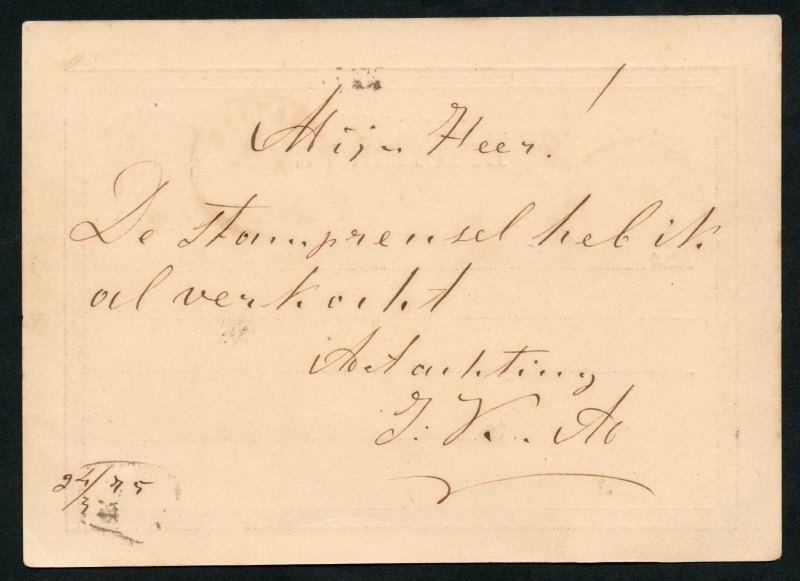 Mijn Heer!
De stamprensel heb ik
al verkocht
Achting
J. V.
24/3 75